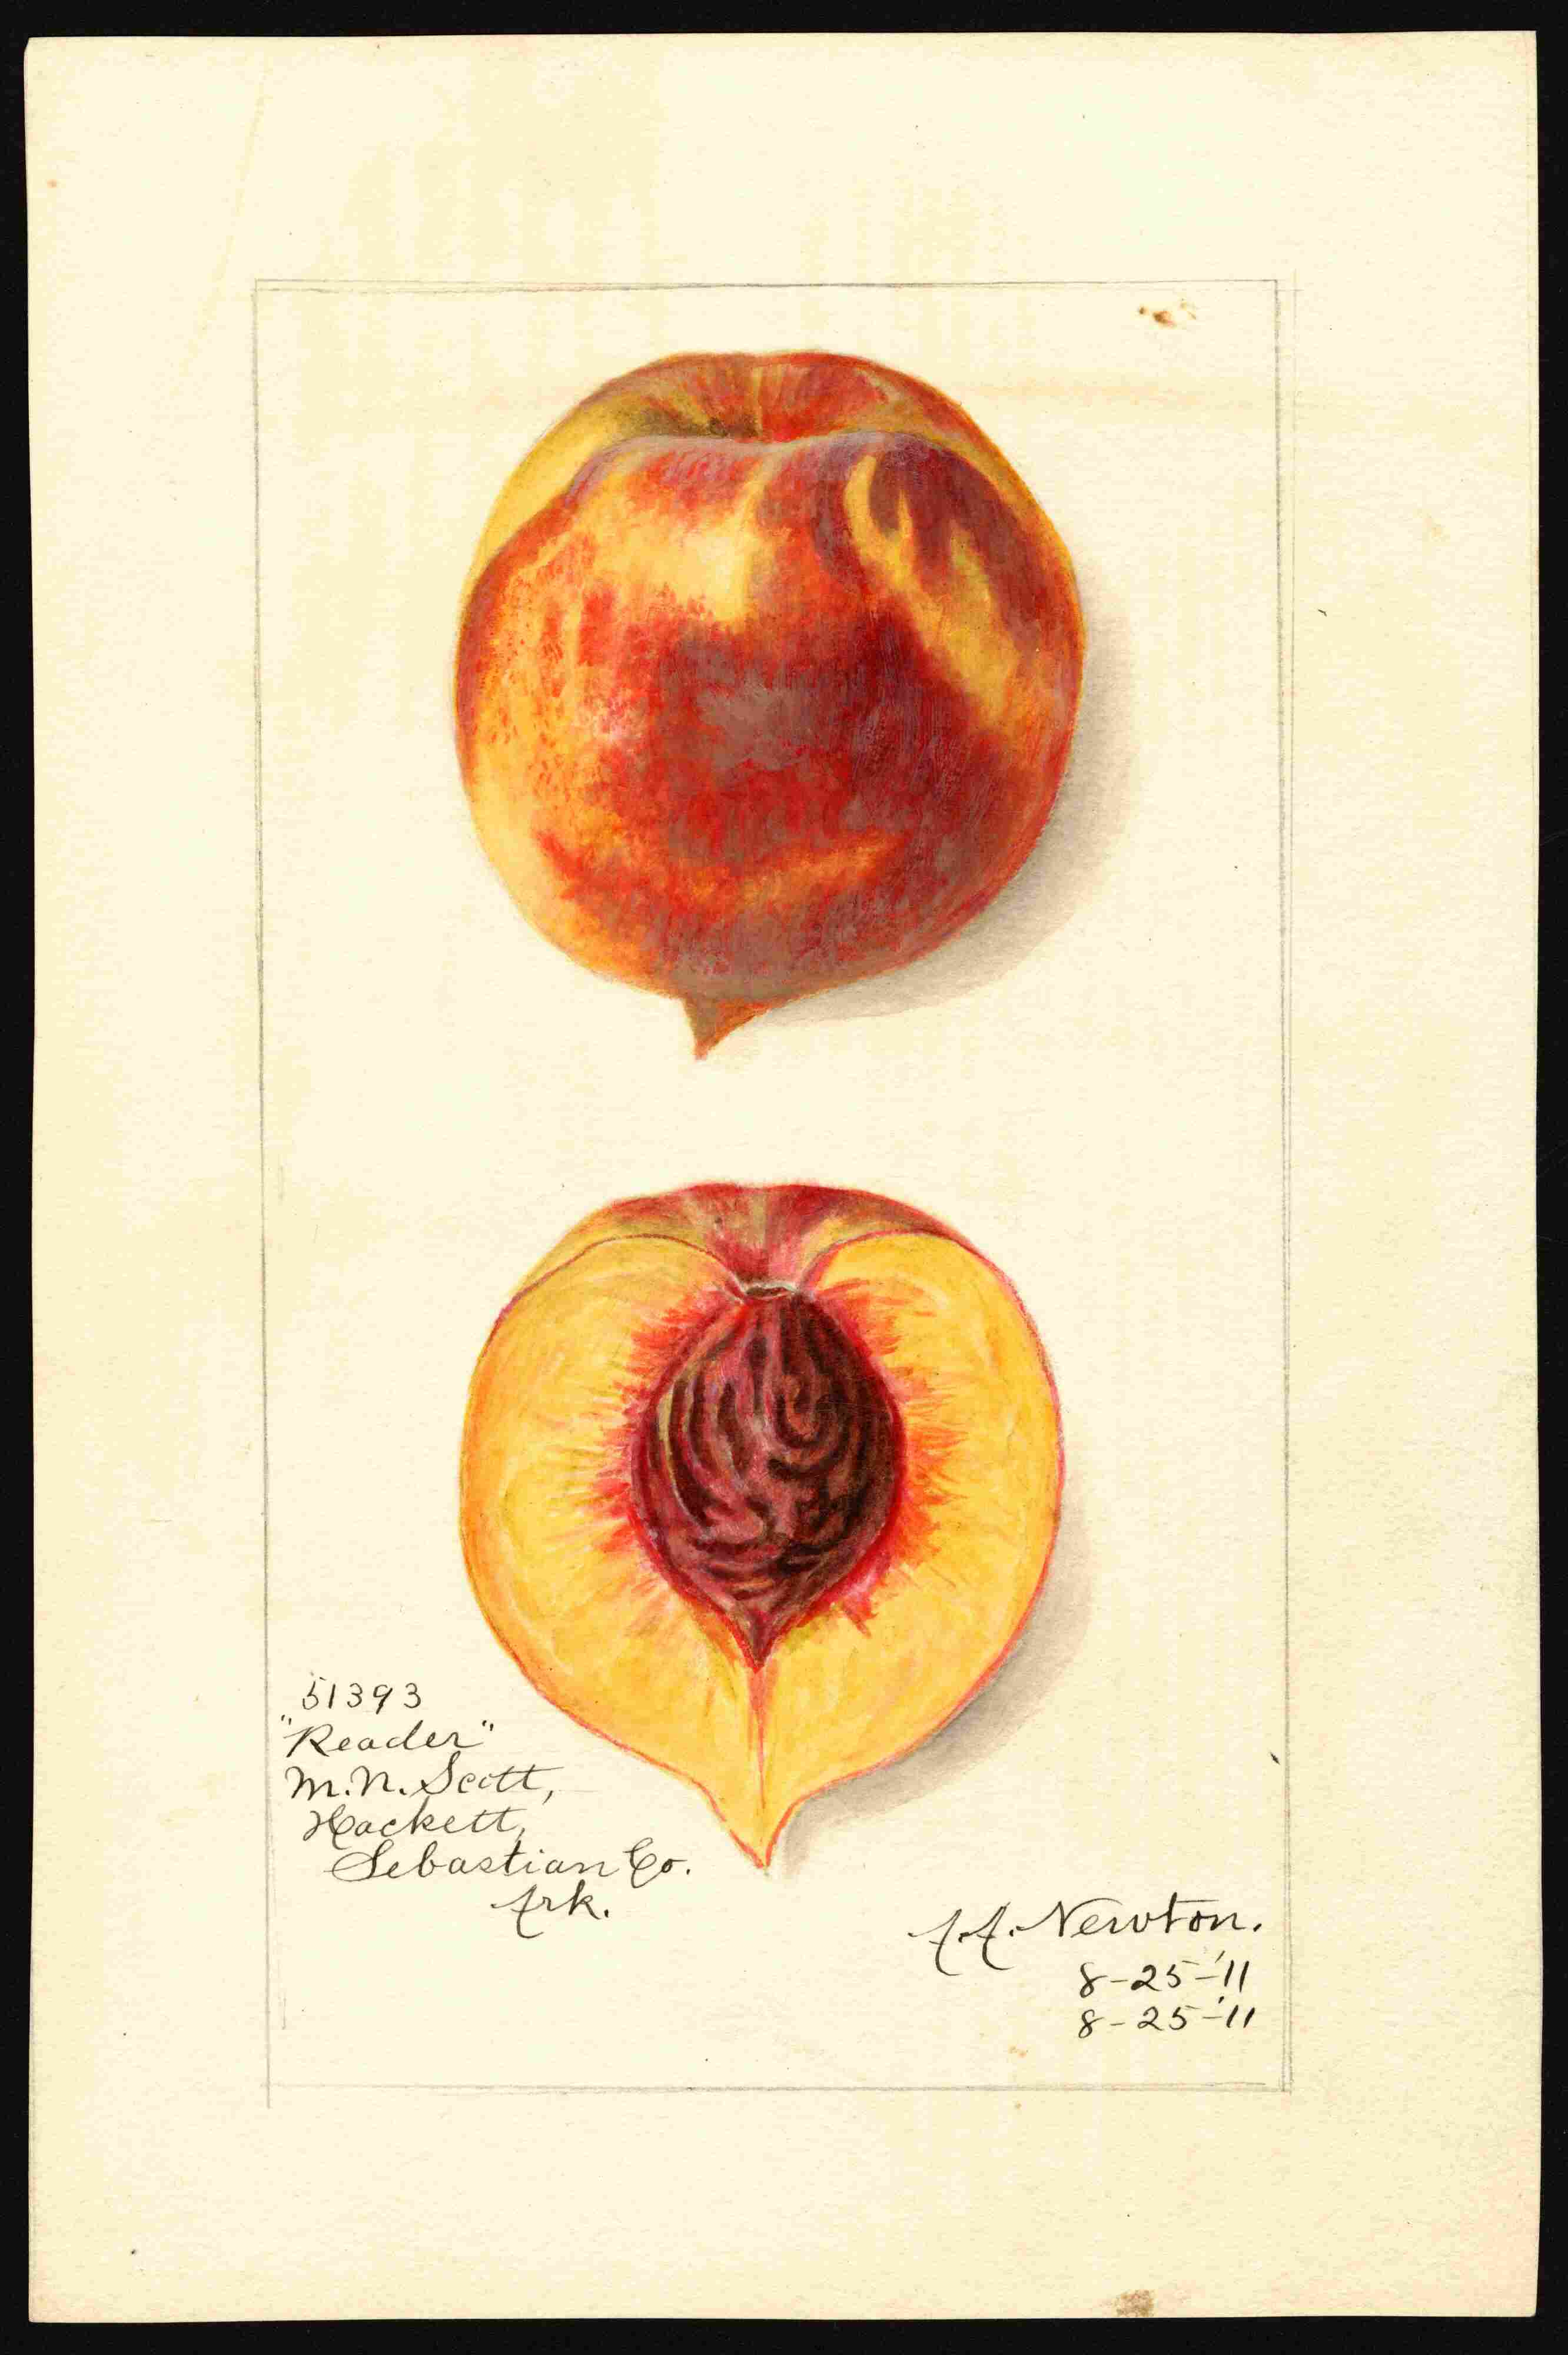 51393
"Reader"
M. N. Scott,
Hackett,
Sebastian Co.
Ark.
A. A. Newton.
8-25-'11
8-25-'11